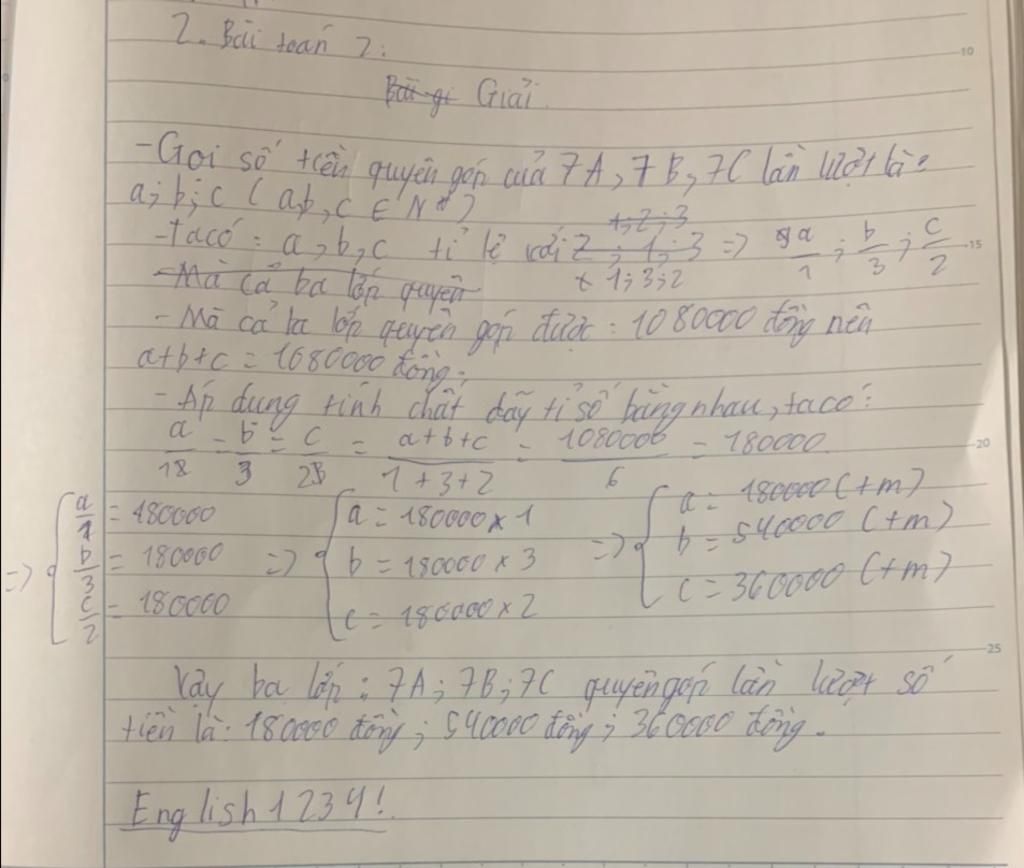 2. Bài toán 2:
Bài gi Giải.
- Gọi số tiền quyên góp của 7A, 7B, 7C lần lượt là:
a; b; c (a,b,c ∈ N*)
1; 2; 3
- ta có: a, b, c tỉ lệ với 2; 1; 3 => a/1 ; b/3 ; c/2
1; 3; 2
- Mà cả ba lớp quyên
- Mà cả ba lớp quyên góp được: 1080000 đồng nên
a+b+c = 1080000 đồng.
- Áp dụng tính chất dãy tỉ số bằng nhau, ta có:
a/1 = b/3 = c/2 = a+b+c/1+3+2 = 1080000/6 = 180000
=> { a/1 = 180000 => { a = 180000 x 1 => { a = 180000 (tm)
b/3 = 180000 b = 180000 x 3 b = 540000 (tm)
c/2 = 180000 c = 180000 x 2 c = 360000 (tm)
Vậy ba lớp: 7A; 7B; 7C quyên góp lần lượt số
tiền là: 180000 đồng; 540000 đồng; 360000 đồng.
English 1234!